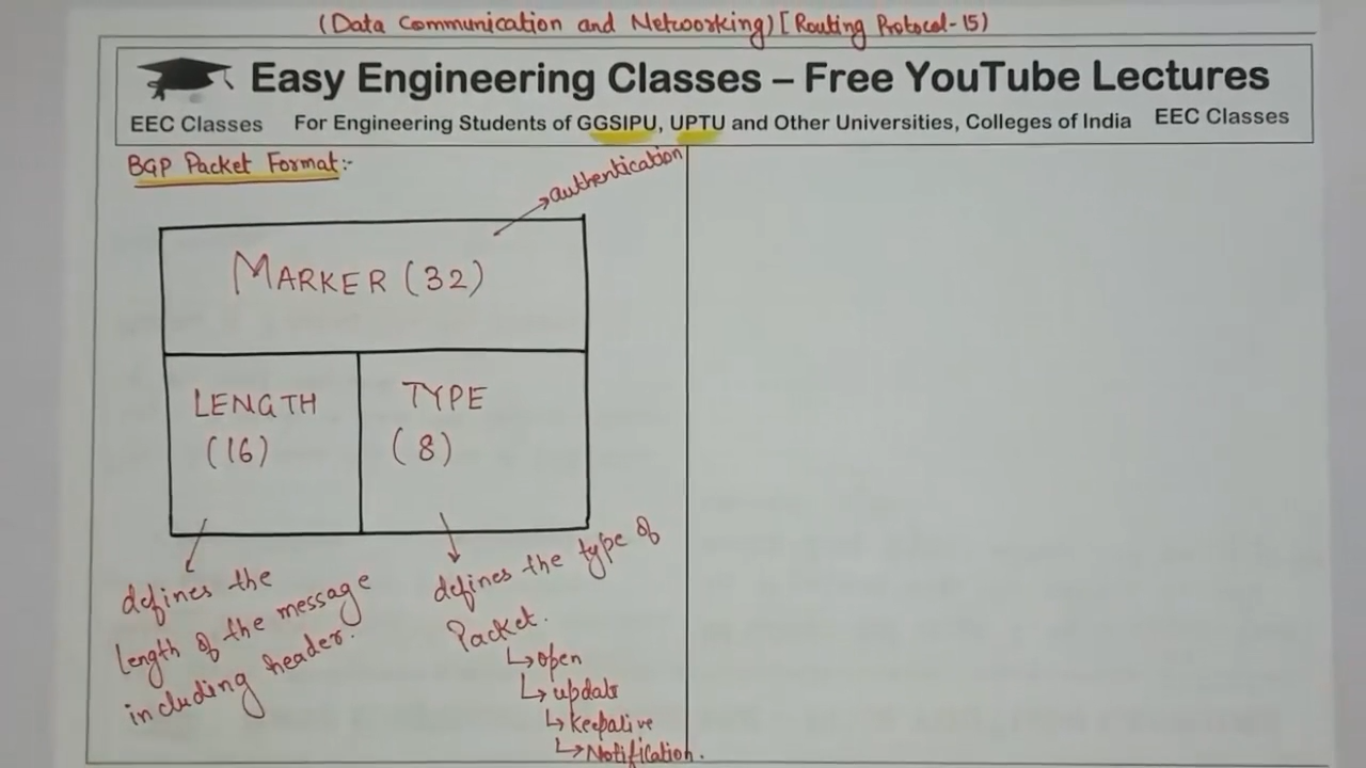 (Data Communication and Networking) [Routing Protocol-15)
Easy Engineering Classes – Free YouTube Lectures
EEC Classes For Engineering Students of GGSIPU, UPTU and Other Universities, Colleges of India EEC Classes
BGP Packet Format:-
authentication
MARKER (32)
LENGTH
(16)
TYPE
(8)
defines the
length of the message
including header.
defines the type of
Packet.
open
update
Keepalive
Notification.